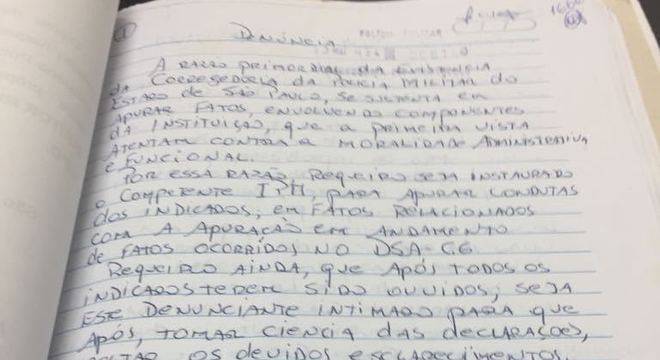 1
Denúncia
POLÍCIA MILITAR
A RAZÃO PRIMORDIAL DA EXISTÊNCIA
DA CORREGEDORIA DA POLÍCIA MILITAR DO
ESTADO DE SÃO PAULO, SE SUSTENTA EM
APURAR FATOS, ENVOLVENDO COMPONENTES
DA INSTITUIÇÃO, QUE A PRIMEIRA VISTA
ATENTAM CONTRA A MORALIDADE ADMINISTRATIVA
E FUNCIONAL.
POR ESSA RAZÃO, REQUEIRO SEJA INSTAURADO
O COMPETENTE IPM, PARA APURAR CONDUTAS
DOS INDICADOS, EM FATOS RELACIONADOS
COM A APURAÇÃO EM ANDAMENTO
DE FATOS OCORRIDOS NO DSA-CG.
REQUEIRO AINDA, QUE APÓS TODOS OS
INDICADOS TEREM SIDO OUVIDOS, SEJA
ESTE DENUNCIANTE INTIMADO PARA QUE
APÓS, TOMAR CIENCIA DAS DECLARAÇÕES,
OS DEVIDOS ESCLARECIMENTOS